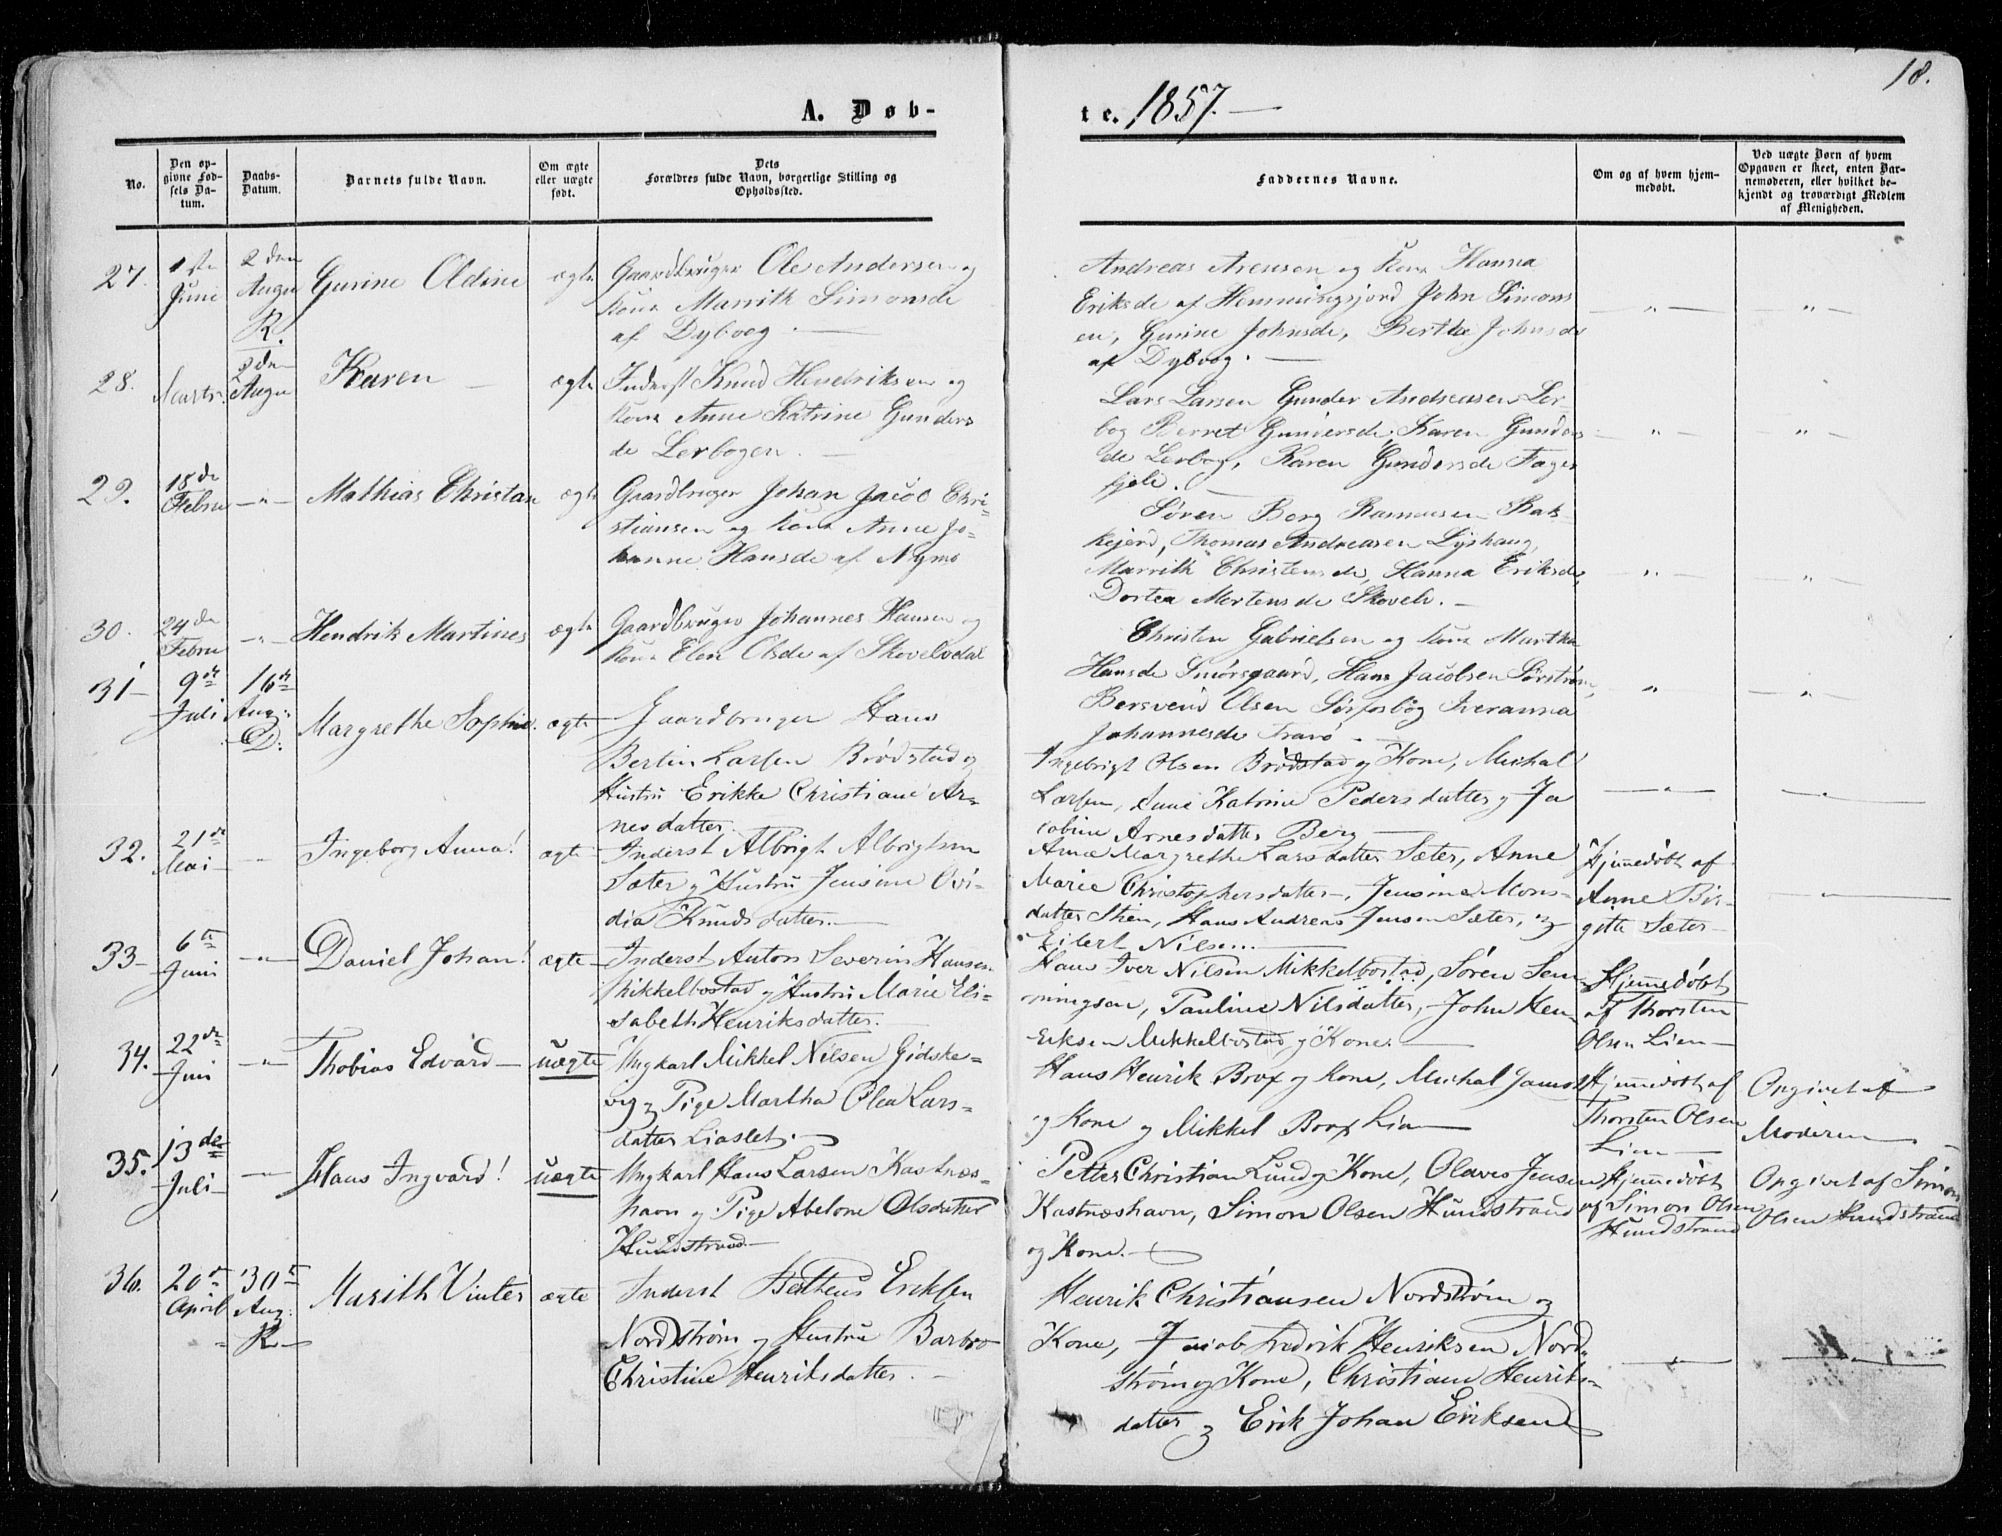 18.
A. Døb-
te. 1857.
No.
Den op-
givne Fød-
sels Da-
tum.
Daabs-
Datum.
Barnets fulde Navn.
Om ægte
eller uægte
født.
Dets
Forældres fulde Navn, borgerlige Stilling og
Opholdssted.
Faddernes Navne.
Om og af hvem hjem-
medøbt.
Ved uægte Børn af hvem
Opgaven er skeet, enten Bar-
nemoderen, eller hvilket be-
kjendt og troværdigt Medlem
af Menigheden.
27.
1ste
Juni
2den
Augu
R.
Gurine Oldine
ægte
Gaardbruger Ole Andersen og
Kone Marrith Simonsde
af Dyboog.
Andreas Arensen og Kone Hanna
Eriksde af Hemmingsjord John Simons
en, Gurine Johnsde, Berthe Johnsde
af Dyboog.
28.
Marts.
2den
Augu
Karen
ægte
Inderst Knud Hendriksen og
Kone Anne Katrine Gunders
de Lerbogen.
Lars Larsen Gunder Andreasen Ler-
bog Berret Gundersde, Karen Gunders
de Lerbog, Karen Gundersde Fager
fjeld.
29.
18de
Febru
Mathias Christian
ægte
Gaardbruger Johan Jacob Chri-
stiansen og Kone Anne Jo-
hanne Hansde af Nymo
Søren Borg Rasmusen Bak-
kejord, Thomas Andreasen Lyshaug,
Marrith Christensde, Hanna Eriksde,
Dortea Mortensde Skovelv.
30.
24de
Febru
Hendrik Martines
ægte
Gaardbruger Johannes Hansen og
Kone Elen Olsde af Skovelvdal
Christen Gabrielsen og Kone Martha
Hansde Smørsgaard, Hans Jacobsen Sørstrøm,
Bersvend Olsen Sørfosbog Iveranna
Johannesde Tranø
31
9de
Juli
16de
Aug:
D:
Margrethe Sophie.
ægte
Gaardbruger Hans
Bertin Larsen Brødstad og
Hustru Erikke Christiane Ar-
nesdatter.
Ingebrigt Olsen Brødstad og Kone, Michal
Larsen, Anne Katrine Pedersdatter og Ja
cobine Arnesdatter Berg
32.
21de
Mai
Ingeborg Anna!
ægte
Inderst Albrigt Albrigtsen
Sæter og Hustru Jensine Ovi-
dia Knudsdatter.
Anne Margrethe Larsdatter Sæter, Anne
Marie Christophersdatter, Jensine Mons-
datter Steen, Hans Andreas Jensen Sæter, og
Eilert Nilsen.
Hjemmedøbt af
Anne Bir-
gitte Sæter
33
6te
Juni
Daniel Johan!
ægte
Inderst Anton Severin Hansen
Mikkelbostad og Hustru Marie Eli-
sabeth Henriksdatter.
Hans Iver Nilsen Mikkelbostad, Søren Sem-
mingsen, Pauline Nilsdatter, John Hen-
riksen Mikkelbostad og Kone.
Hjemmedøbt
af Thorsten
Olsen Lien
34.
22de
Juni
Thobias Edvard
uægte
Ungkarl Mikkel Nilsen Gidske-
vig og Pige Martha Olea Lars-
datter Liaslet.
Hans Henrik Brox og Kone, Michal Jans
og Kone og Mikkel Brox Lien
Hjemmedøbt af
Thorsten Olsen
Lien
Opgivet af
Moderen
35.
13de
Juli
Hans Ingvard!
uægte
Ungkarl Hans Larsen Kastnæs-
havn og Pige Abelone Olsdatter
Hundstrand
Petter Christian Lund og Kone, Olaves Jensen
Kastnæshavn, Simon Olsen Hundstrand
og Kone.
Hjemmedøbt
af Simon Olsen
Hundstrand
Opgivet af Simon
Olsen Hundstrand
36.
20de
April
30te
Aug.
R.
Marith Vinter
ægte
Inderst Petteus Eriksen
Nordstrøm og Hustru Barbro
Christine Henriksdatter.
Henrik Christiansen Nordstrøm og
Kone, Jacob Fredrik Henriksen Nord-
strøm og Kone, Christiane Henriks-
datter og Erik Johan Eriksen